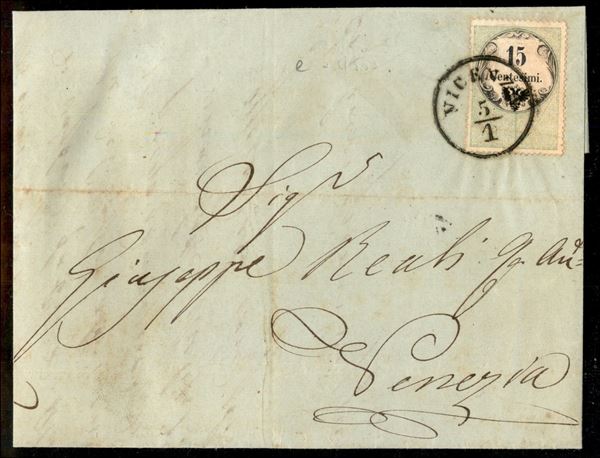 15
Centesimi.
VICENZA
5/1
e
Sigr
Giuseppe Reali
Venezia